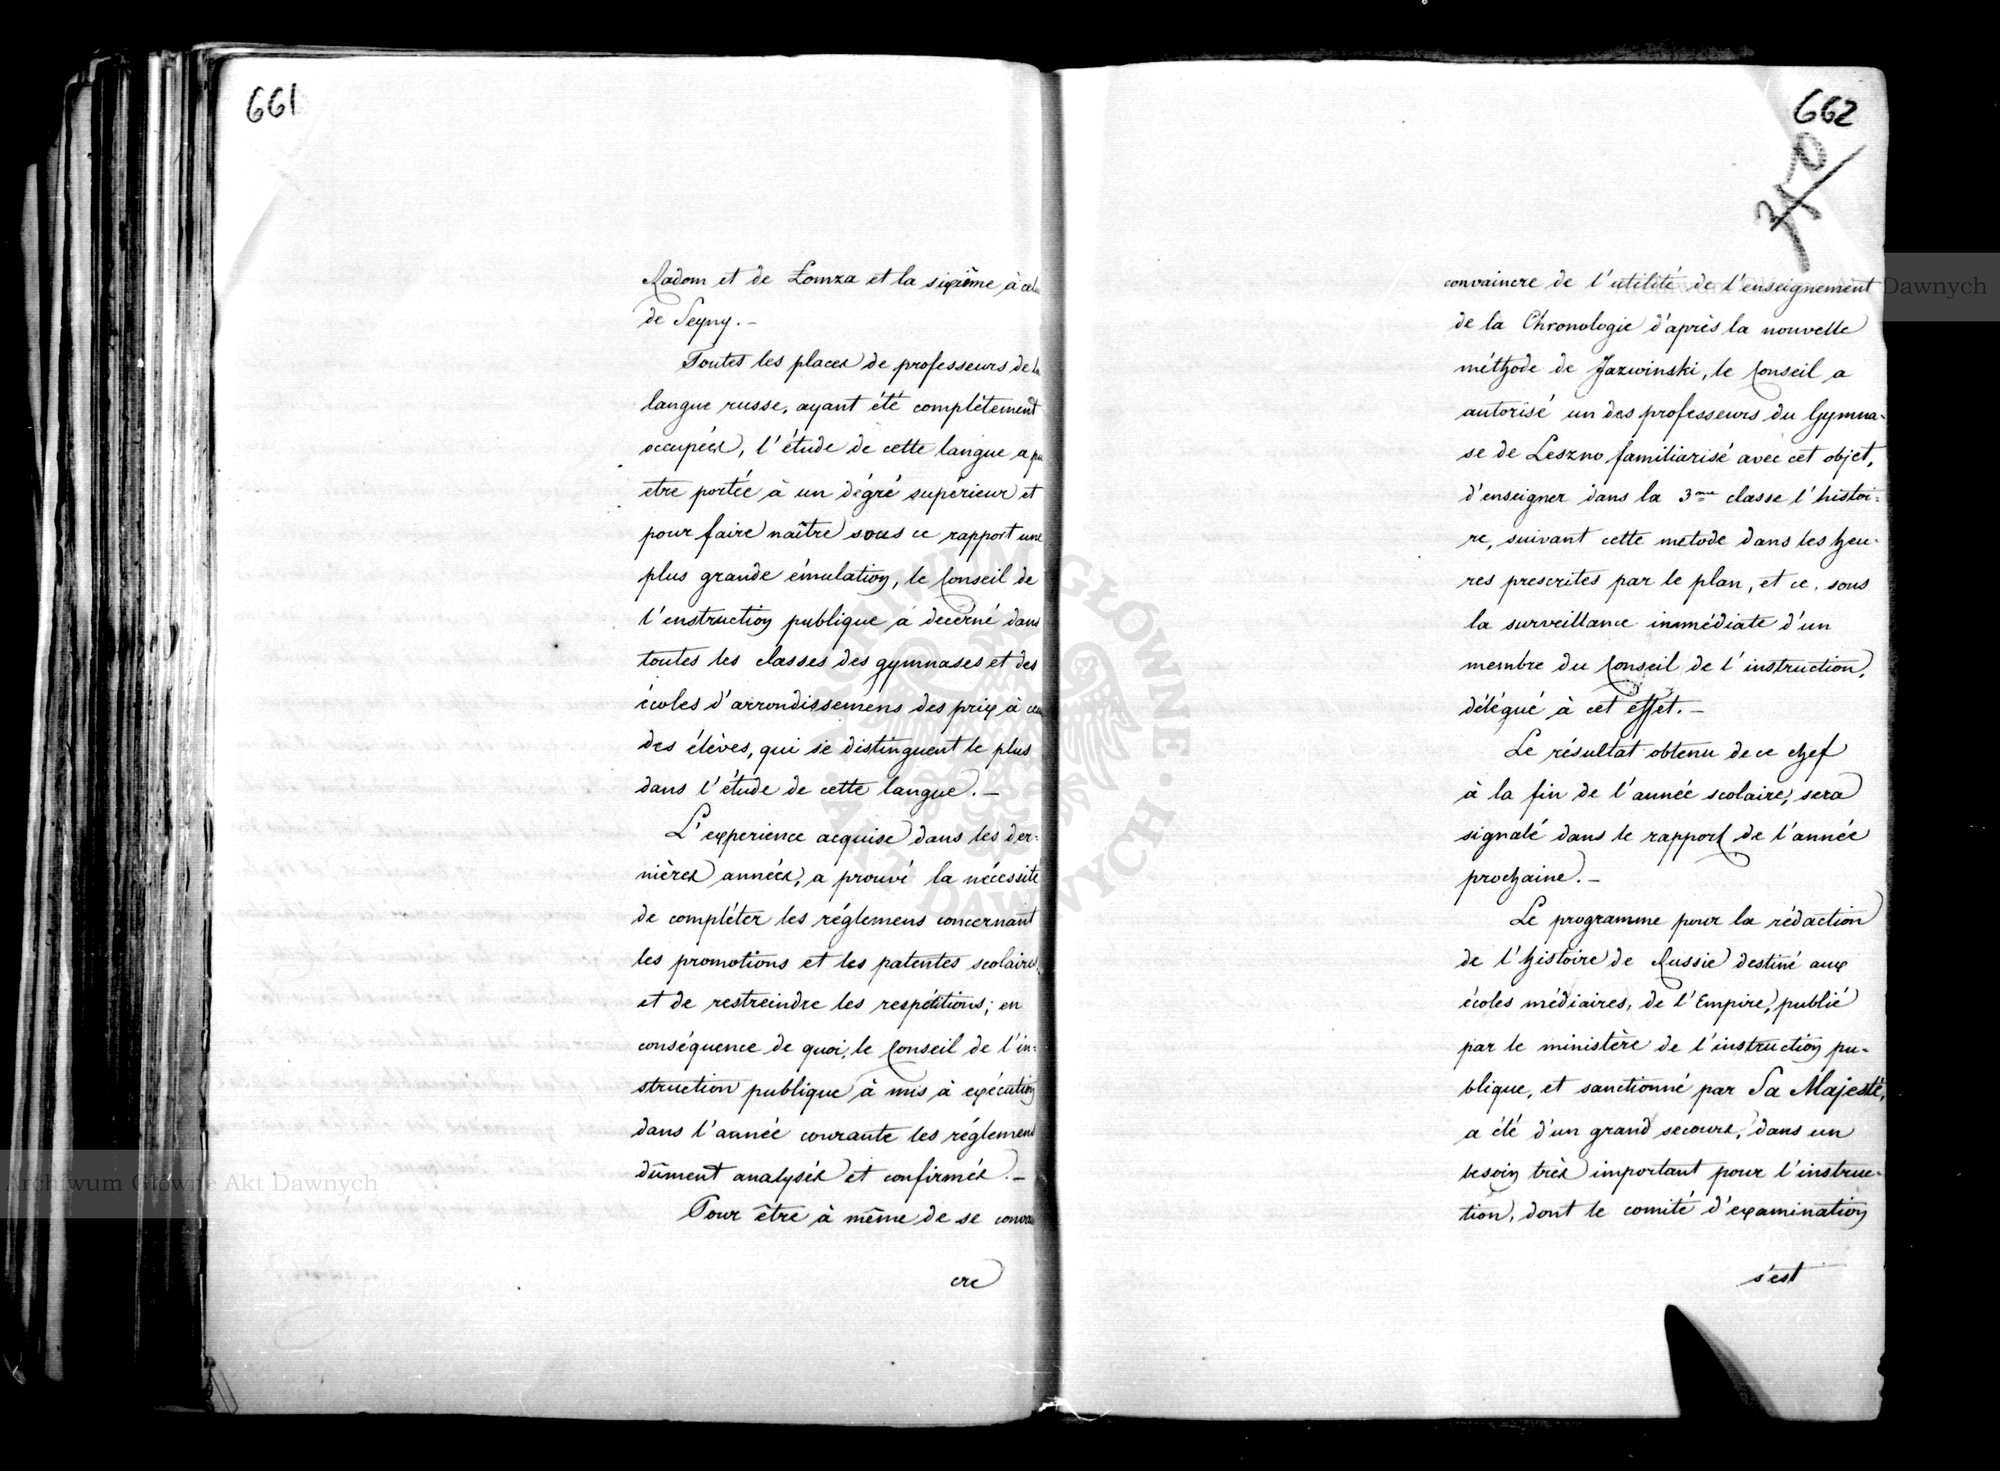 661
Radom et de Łomza et la sixième à celui
de Seyny. –
Toutes les places de professeurs de la
langue russe, ayant été complétement
occupées, l'étude de cette langue a pu
etre portée à un dégré supérieur et
pour faire naître sous ce rapport une
plus grande émulation, le Conseil de
l'enstruction publique à decerné dans
toutes les classes des gymnases et des
écoles d'arrondissemens des prix à ceux
des élèves, qui se distinguent le plus
dans l'étude de cette langue. –
L'experience acquise dans les der-
nières années, a prouvé la nécessité
de compléter les réglemens concernant
les promotions et les patentes scolaires,
et de restreindre les respétitions; en
conséquence de quoi, le Conseil de l'in-
struction publique à mis à exécution
dans l'année courante les réglemens
dûment analysés et confirmés. –
Pour être à même de se convain
cre
662
convaincre de l'utilité de l'enseignement
de la Chronologie d'après la nouvelle
méthode de Jazwinski, le Conseil a
autorisé un des professeurs du Gymna-
se de Leszno familiarisé avec cet objet,
d'enseigner dans la 3me classe l'histoi-
re, suivant cette metode dans les heu-
res prescrites par le plan, et ce, sous
la surveillance immédiate d'un
membre du Conseil de l'instruction,
délégué à cet effet. –
Le résultat obtenu de ce chef
à la fin de l'année scolaire, sera
signalé dans le rapport de l'année
prochaine. –
Le programme pour la rédaction
de l'histoire de Russie destiné aux
écoles médiaires, de l'Empire, publié
par le ministère de l'instruction pu-
blique, et sanctionné par Sa Majesté,
a été d'un grand secours, dans un
besoin très important pour l'instruc-
tion, dont le comité d'examination
s'est
Archiwum Główne Akt Dawnych
Archiwum Główne Akt Dawnych
ARCHIWUM GŁÓWNE AKT DAWNYCH